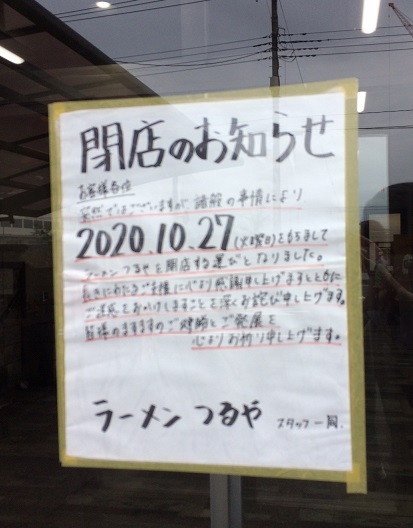 閉店のお知らせ
お客様各位
突然ではございますが 諸般の事情により
2020.10.27(火曜日)をもちまして
ラーメンつるやを閉店する運びとなりました。
長きにわたりご支援に心より感謝申し上げますとともに
ご迷惑をおかけしますことを深くお詫び申し上げます。
皆様のますますのご健勝とご発展を
心よりお祈り申し上げます。
ラーメン つるや スタッフ一同.